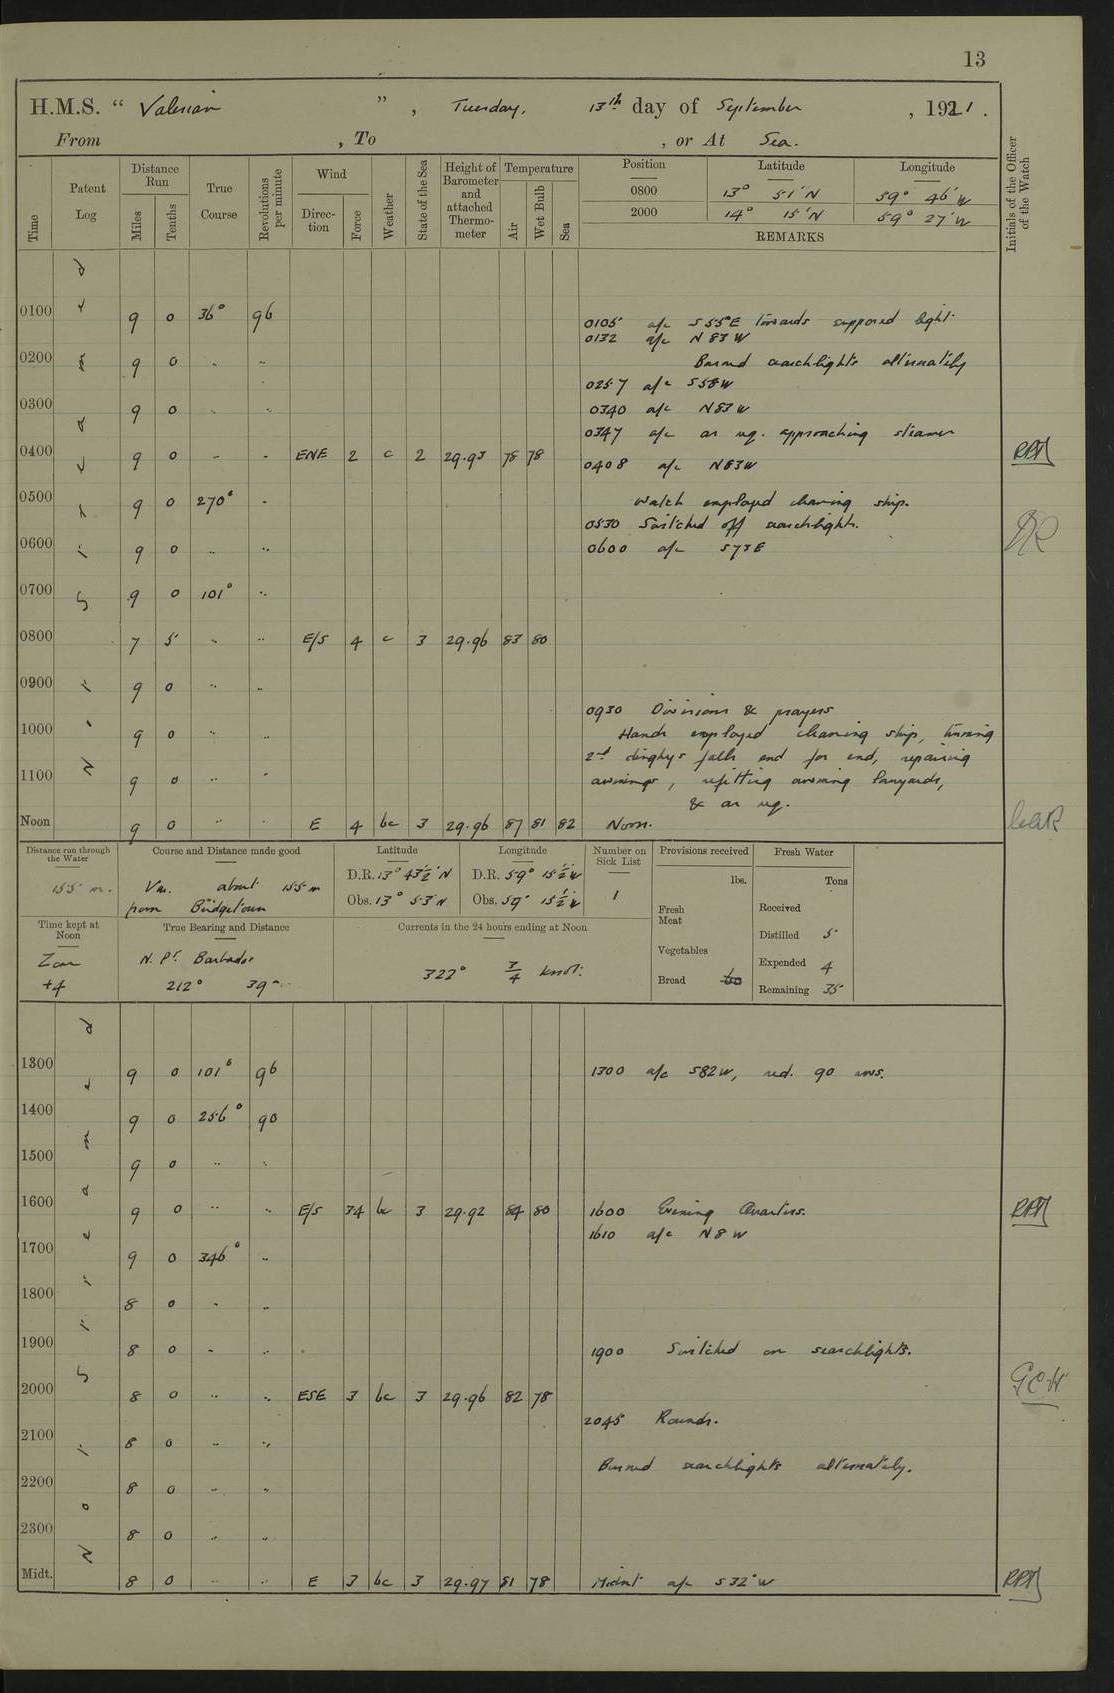 13
H.M.S. " Valerian ", Tuesday, 13th day of September, 1921.
From , To , or At Sea.
Time
Patent Log
Distance Run
Miles
Tenths
True Course
Revolutions per minute
Wind
Direction
Force
Weather
State of the Sea
Height of Barometer and attached Thermometer
Temperature
Air
Wet Bulb
Sea
Position Latitude Longitude
0800 13° 51' N 59° 46' W
2000 14° 15' N 59° 27' W
REMARKS
Initials of the Officer of the Watch
Not Streamed
0100 9 0 36° 96
0105 a/c S55°E towards supposed light.
0132 a/c N83W
0200 9 0 .. ..
Burned searchlights alternately
0257 a/c S58W
0300 9 0 .. ..
0340 a/c N83W
0347 a/c as req. approaching steamer
0400 9 0 - - ENE 2 c 2 29.93 78 78
0408 a/c N83W
0500 9 0 270° -
Watch employed cleaning ship.
0530 Switched off searchlights.
0600 9 0 .. ..
0600 a/c S73E
0700 9 0 101° ..
0800 7 5 .. .. E/S 4 c 3 29.96 83 80
0900 9 0 .. ..
0930 Divisions & prayers
1000 9 0 .. ..
Hands employed cleaning ship, turning
2nd dinghy's falls end for end, repairing
1100 9 0 .. ..
awnings, refitting awning lanyards,
& as req.
Noon 9 0 .. .. E 4 bc 3 29.96 87 81 82 Noon.
Distance run through the Water
155 m.
Course and Distance made good
Var. about 155 m
from Bridgetown
Latitude
D.R. 13° 43½' N
Obs. 13° 53' N
Longitude
D.R. 59° 15½' W
Obs. 59° 15½' W
Number on Sick List
1
Provisions received
lbs.
Fresh Meat
Vegetables
Bread 60
Fresh Water
Tons
Received
Distilled 5
Expended 4
Remaining 35
Time kept at Noon
Zone
+4
True Bearing and Distance
N. Pt. Barbados
212° 39
Currents in the 24 hours ending at Noon
322° ¾ knot.
Not Streamed
1300 9 0 101° 96
1300 a/c S82W, red. 90 revs.
1400 9 0 256° 90
1500 9 0 .. ..
1600 9 0 .. .. E/S 34 bc 3 29.92 84 80
1600 Evening Quarters.
1610 a/c N8W
1700 9 0 346° ..
1800 8 0 .. ..
1900 8 0 - ..
1900 Switched on searchlights.
2000 8 0 .. .. ESE 3 bc 3 29.96 82 78
G.C.H.
2045 Rounds.
2100 8 0 .. ..
Burned searchlights alternately.
2200 8 0 .. ..
2300 8 0 .. ..
Midt. 8 0 .. .. E 3 bc 3 29.97 81 78
Midnt a/c S32°W